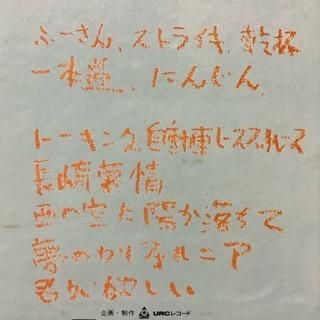 ふーさん、ストライキ、乾杯
一本道、にんじん
トーキング自動車レースブルース
長崎慕情
西の空に陽が落ちて
夢のカリフォルニア
君が欲しい
企画・制作 URCレコード